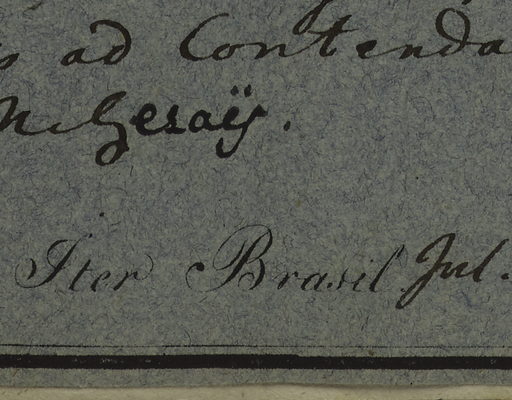 ad Contenda
M. Geraÿ.
Iter Brasil. Jul.